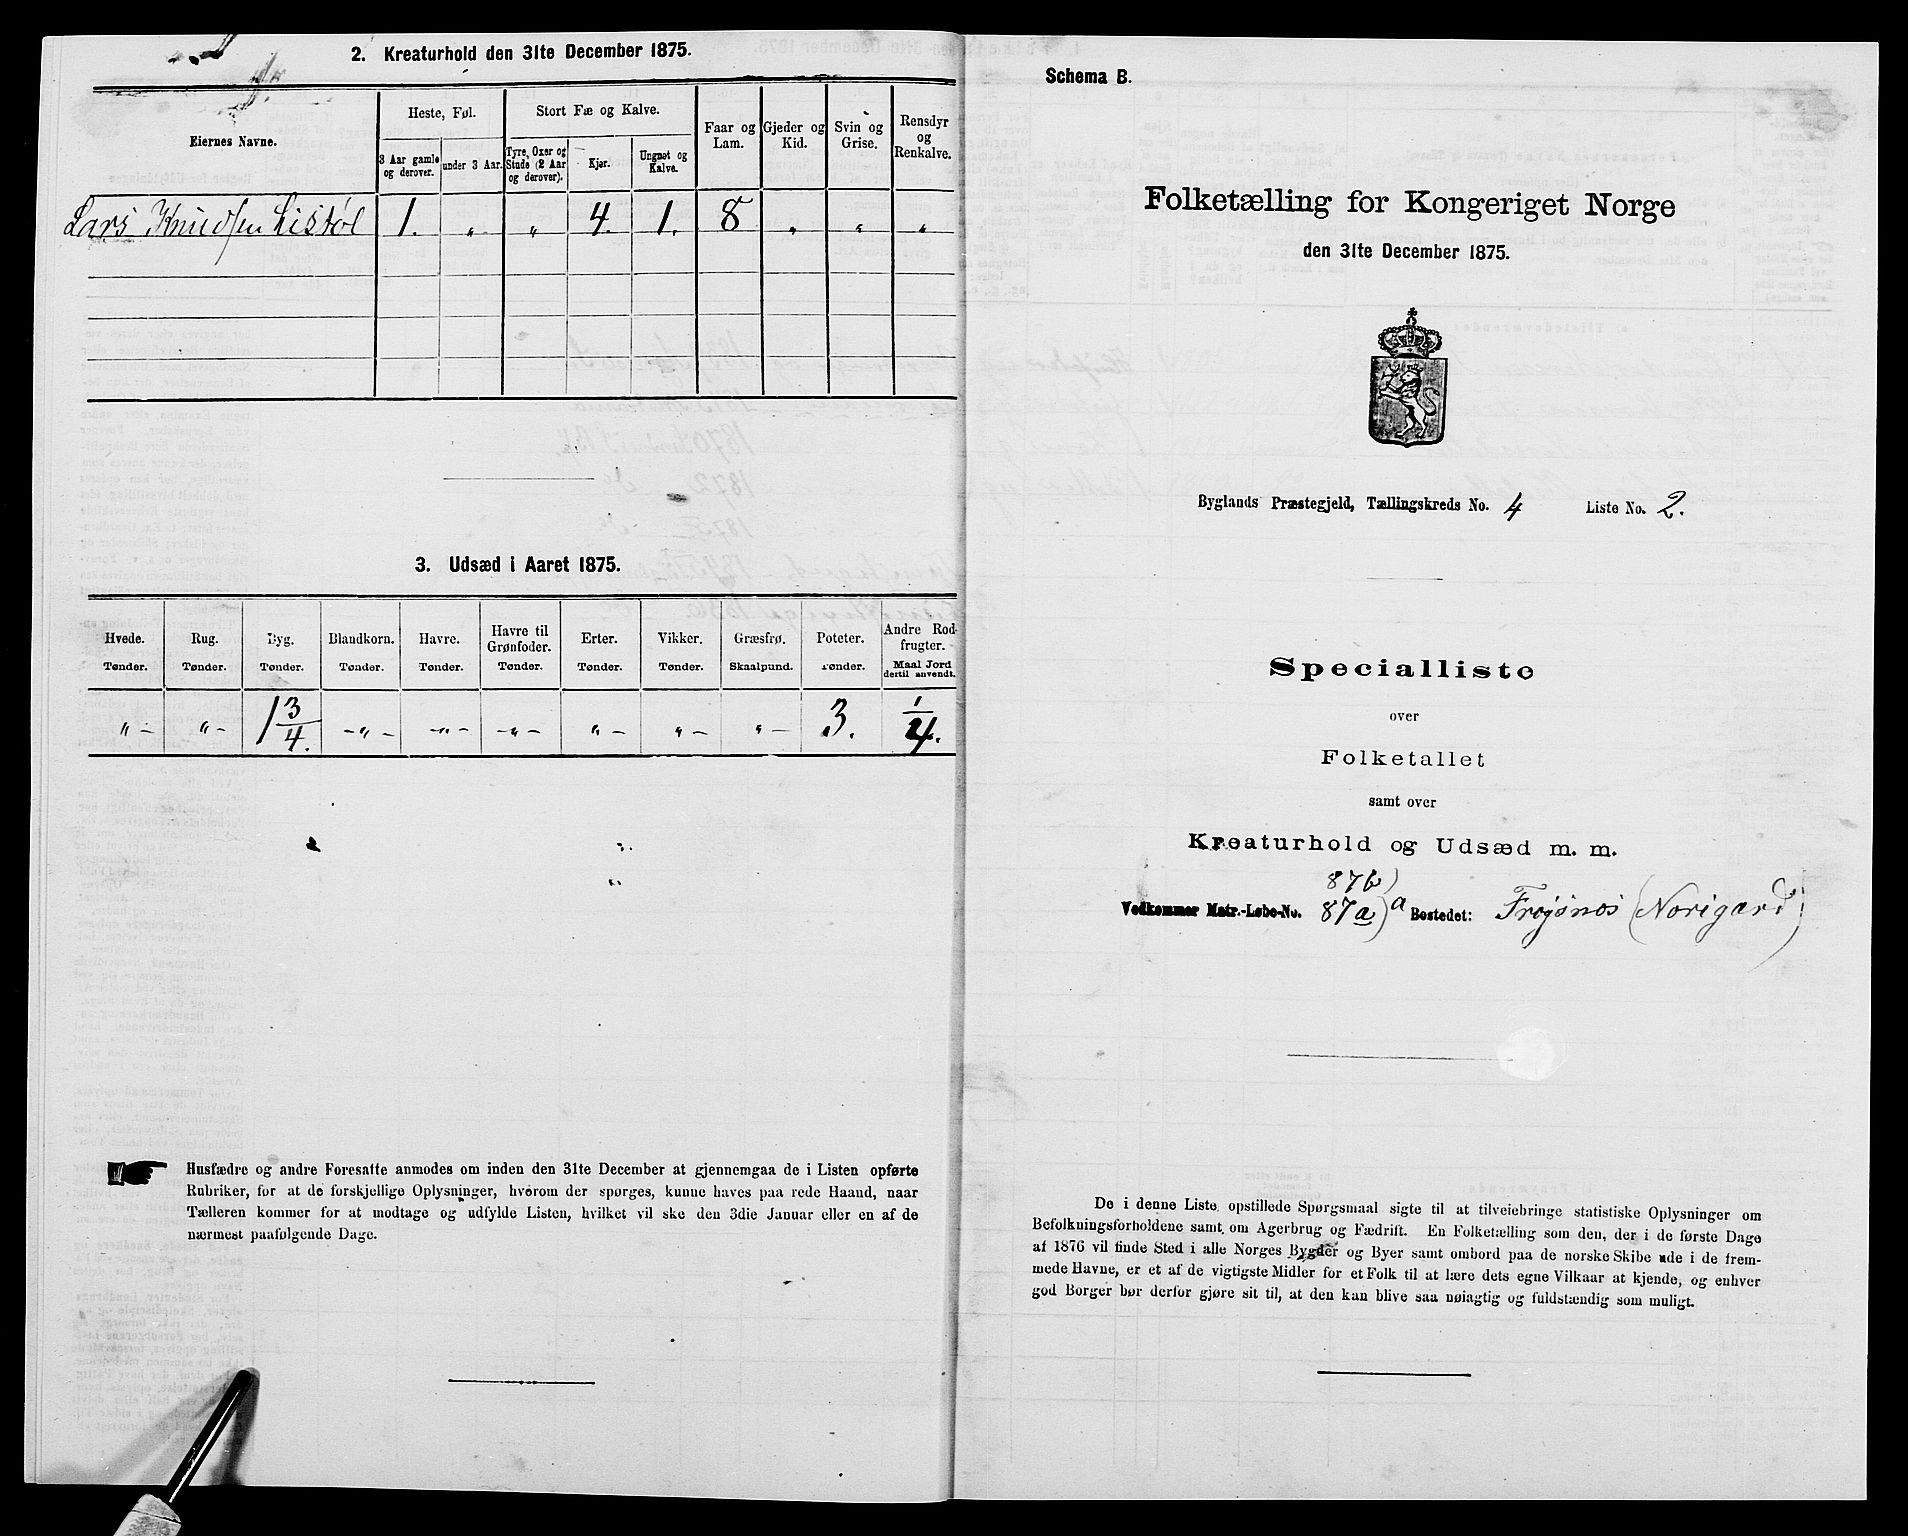 2. Kreaturhold den 31te December 1875.
Eiernes Navne.
Heste, Føl.
3 Aar gamle og derover.
under 3 Aar.
Stort Fæ og Kalve.
Tyre, Oxer og Stude (2 Aar og derover).
Kjør.
Ungnøt og Kalve.
Faar og Lam.
Gjeder og Kid.
Svin og Grise.
Rensdyr og Renkalve.
Lars Knudsen Listøl 1. „ „ 4. 1. 8 „ „ „
3. Udsæd i Aaret 1875.
Hvede. Rug. Byg. Blandkorn. Havre. Havre til Grønfoder. Erter. Vikker. Græsfrø. Poteter. Andre Rodfrugter.
Tønder. Tønder. Tønder. Tønder. Tønder. Tønder. Tønder. Tønder. Skaalpund. Tønder. Maal Jord dertil anvendt.
„ – „ – 1 3/4. – „ – – „ – – „ – „ – „ – „ – 3. 1/4.
Husfædre og andre Foresatte anmodes om inden den 31te December at gjennemgaa de i Listen opførte
Rubriker, for at de forskjellige Oplysninger, hvorom der spørges, kunne haves paa rede Haand, naar
Tælleren kommer for at modtage og udfylde Listen, hvilket vil ske den 3die Januar eller en af de
nærmest paafølgende Dage.
Schema B.
Folketælling for Kongeriget Norge
den 31te December 1875.
Byglands Præstegjeld, Tællingskreds No. 4 Liste No. 2.
Specialliste
over
Folketallet
samt over
Kreaturhold og Udsæd m. m.
87b)
Vedkommer Matr.-Løbe-No. 87a) a Bostedet: Frøjsnes (Norigard)
De i denne Liste opstillede Spørgsmaal sigte til at tilveiebringe statistiske Oplysninger om
Befolkningsforholdene samt om Agerbrug og Fædrift. En Folketælling som den, der i de første Dage
af 1876 vil finde Sted i alle Norges Bygder og Byer samt ombord paa de norske Skibe ude i de frem-
mede Havne, er et af de vigtigste Midler for et Folk til at lære dets egne Vilkaar at kjende, og enhver
god Borger bør derfor gjøre sit til, at den kan blive saa nøiagtig og fuldstændig som muligt.